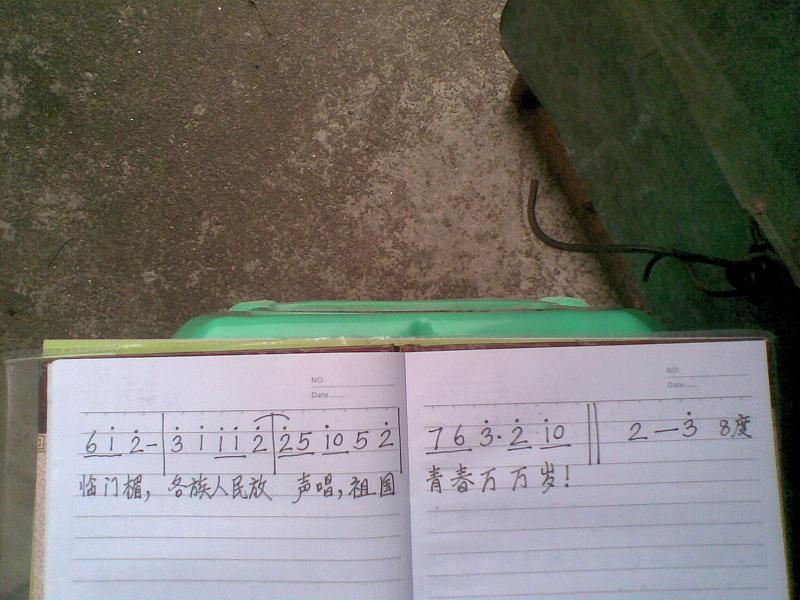 NO:
Date
6 i̇ 2̇ – | 3̇ i̇ i̇ i̇ 2̇ | 2̇ 5 i̇ 0 5 2̇ |
临门楣，各族人民放 声唱，祖国
NO:
Date
7 6 3̇· 2̇ i̇ 0 ‖ 2 — 3̇ 8度
青春万万岁！